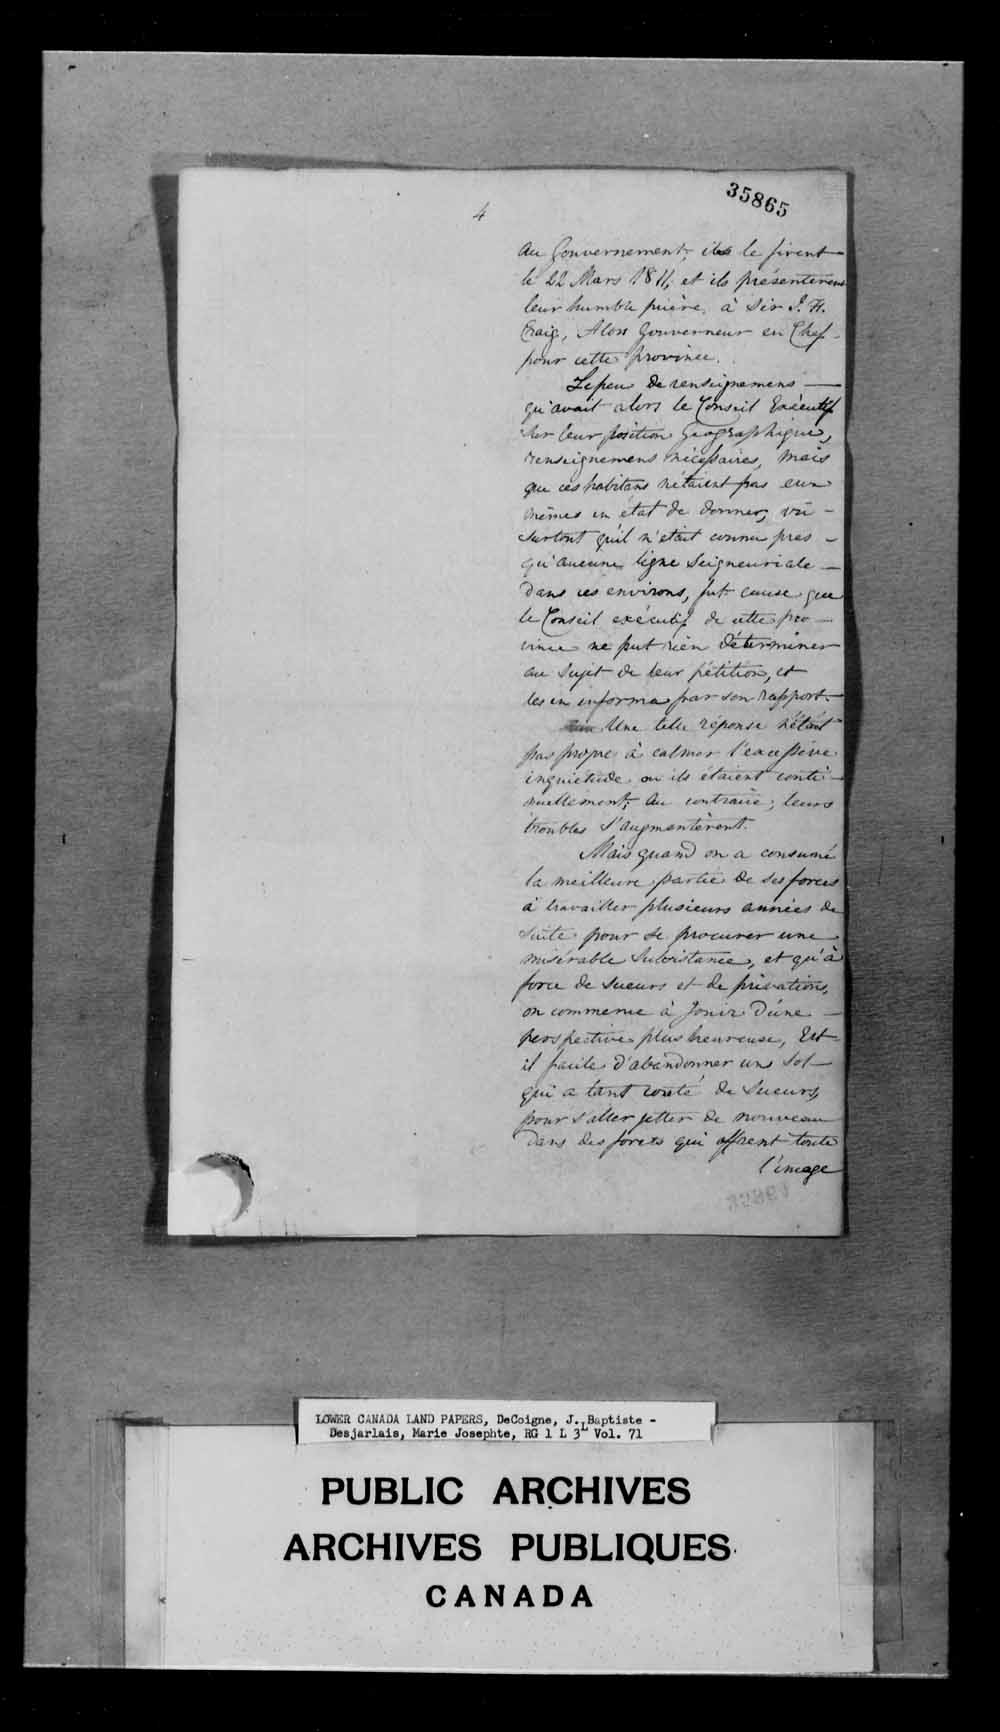 35865
4
au Gouvernement, ils le firent
le 22 Mars 1811, et ils présenterent
leur humble prière, à Sir J. H.
Craig, Alors Gouverneur en Chef
pour cette province.
Le peu de renseignemens —
qu'avait alors le Conseil Exécutif
sur leur position Géographique,
renseignemens nécessaires, mais
que ces habitans n'étaient pas eux
mêmes en état de donner, vû —
surtout qu'il n'était connu pres –
qu'aucune ligne Seigneuriale —
dans ces environs, fut cause que
le Conseil exécutif de cette pro —
vince ne put rien déterminer
au Sujet de leur pétition, et
les en informa par son rapport. —
Une telle réponse n'était
pas propre à calmer l'excessive
inquiétude où ils étaient conti —
nuellement; Au contraire, leurs
troubles s'augmentèrent.
Mais quand on a consumé
la meilleure partie de ses forces
à travailler plusieurs années de
suite pour se procurer une
misérable Subsistance, et qu'à
force de sueurs et de privations,
on commence à Jouir d'une —
perspective plus heureuse, Est
il facile d'abandonner un Sol —
qui a tant couté de Sueurs,
pour s'aller jetter de nouveau
dans des forets qui offrent toute
l'image
LOWER CANADA LAND PAPERS, DeCoigne, J. Baptiste -
Desjarlais, Marie Josephte, RG 1 L 3L Vol. 71
PUBLIC ARCHIVES
ARCHIVES PUBLIQUES
CANADA